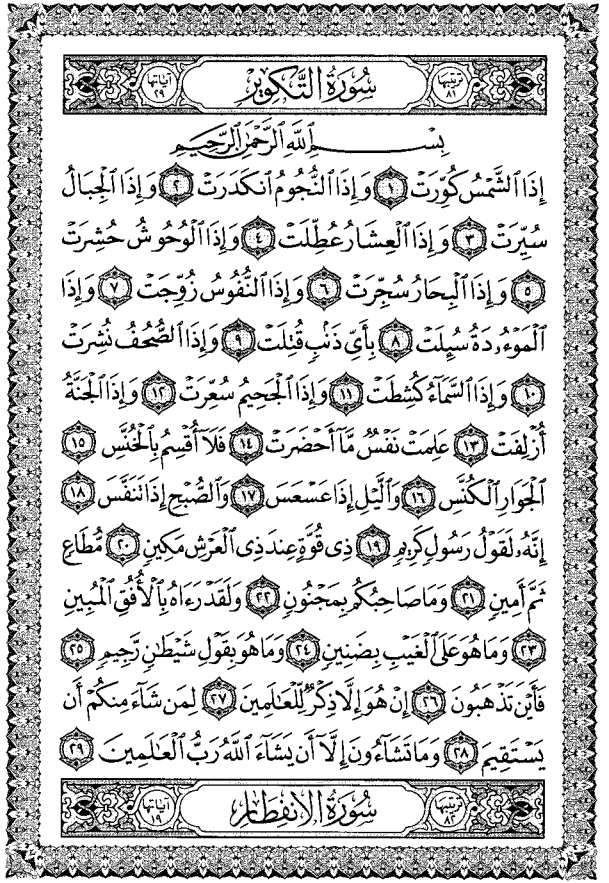 ترتيبها ٨١ سُورَةُ التَّكْوِيرِ آياتها ٢٩
بِسْمِ ٱللَّهِ ٱلرَّحْمَٰنِ ٱلرَّحِيمِ
إِذَا ٱلشَّمْسُ كُوِّرَتْ ١ وَإِذَا ٱلنُّجُومُ ٱنكَدَرَتْ ٢ وَإِذَا ٱلْجِبَالُ
سُيِّرَتْ ٣ وَإِذَا ٱلْعِشَارُ عُطِّلَتْ ٤ وَإِذَا ٱلْوُحُوشُ حُشِرَتْ
٥ وَإِذَا ٱلْبِحَارُ سُجِّرَتْ ٦ وَإِذَا ٱلنُّفُوسُ زُوِّجَتْ ٧ وَإِذَا
ٱلْمَوْءُۥدَةُ سُئِلَتْ ٨ بِأَىِّ ذَنۢبٍ قُتِلَتْ ٩ وَإِذَا ٱلصُّحُفُ نُشِرَتْ
١٠ وَإِذَا ٱلسَّمَآءُ كُشِطَتْ ١١ وَإِذَا ٱلْجَحِيمُ سُعِّرَتْ ١٢ وَإِذَا ٱلْجَنَّةُ
أُزْلِفَتْ ١٣ عَلِمَتْ نَفْسٌ مَّآ أَحْضَرَتْ ١٤ فَلَآ أُقْسِمُ بِٱلْخُنَّسِ ١٥
ٱلْجَوَارِ ٱلْكُنَّسِ ١٦ وَٱلَّيْلِ إِذَا عَسْعَسَ ١٧ وَٱلصُّبْحِ إِذَا تَنَفَّسَ ١٨
إِنَّهُۥ لَقَوْلُ رَسُولٍ كَرِيمٍ ١٩ ذِى قُوَّةٍ عِندَ ذِى ٱلْعَرْشِ مَكِينٍ ٢٠ مُّطَاعٍ
ثَمَّ أَمِينٍ ٢١ وَمَا صَاحِبُكُم بِمَجْنُونٍ ٢٢ وَلَقَدْ رَءَاهُ بِٱلْأُفُقِ ٱلْمُبِينِ
٢٣ وَمَا هُوَ عَلَى ٱلْغَيْبِ بِضَنِينٍ ٢٤ وَمَا هُوَ بِقَوْلِ شَيْطَٰنٍ رَّجِيمٍ ٢٥
فَأَيْنَ تَذْهَبُونَ ٢٦ إِنْ هُوَ إِلَّا ذِكْرٌ لِّلْعَٰلَمِينَ ٢٧ لِمَن شَآءَ مِنكُمْ أَن
يَسْتَقِيمَ ٢٨ وَمَا تَشَآءُونَ إِلَّآ أَن يَشَآءَ ٱللَّهُ رَبُّ ٱلْعَٰلَمِينَ ٢٩
ترتيبها ٨٢ سُورَةُ الانفِطَارِ آياتها ١٩